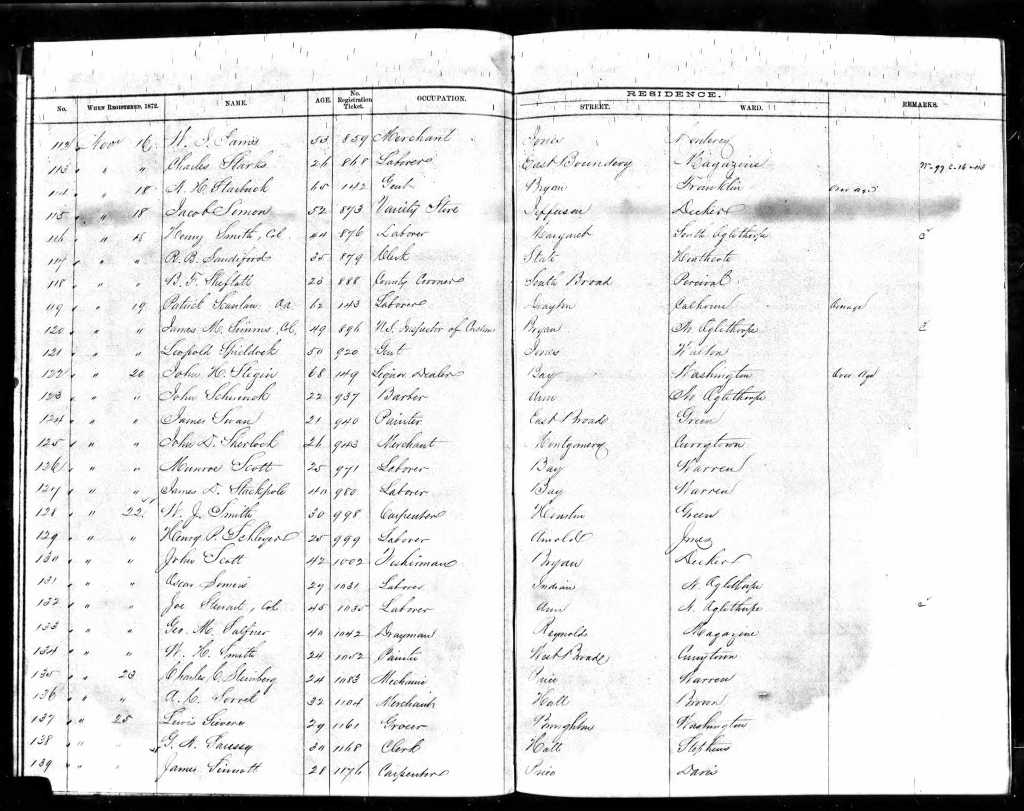 RESIDENCE.
No. WHEN REGISTERED, 1872. NAME. AGE. No. Registration Ticket. OCCUPATION. STREET. WARD. REMARKS.
112 Nov 16 W. S. 53 859 Merchant Jones Monterey
113 " " Charles Starks 26 868 Laborer East Boundery Magazine
114 " 18 A. H. Starbuck 65 142 Gent Bryan Franklin over age
115 " 18 Jacob Simon 52 873 Varity Store Jefferson Decker
116 " 18 Henry Smith, Col 44 876 Laborer Margaret South Oglethorpe C
117 " " R. B. Sandiford 35 879 Clerk State Heathcote
118 " " B. F. Sheftall 25 888 County Coroner South Broad Percival
119 " 19 Patrick Scanlan 62 143 Laborer Drayton Calhoun
120 " " James M. Simms, Col. 49 896 U.S. Inspector of Custom Bryan No Oglethorpe C
121 " " Leopold 50 920 Gent Jones Walton
122 " 20 John H. 68 149 Liquor Dealer Bay Washington Over Age
123 " " John Schwenck 22 937 Barber Ann No Oglethorpe
124 " " James Swan 21 940 Painter East Broad Green
125 " " John D. Sherlock 26 943 Merchant Montgomery Currytown
126 " " Munroe Scott 25 971 Laborer Bay Warren
127 " " James D. Stackpole 40 980 Laborer Bay Warren
128 " 22 W. J. Smith 30 998 Carpenter Houston Green
129 " " Henry P. 25 999 Laborer Arnold
130 " " John Scott 42 1002 Fisherman Bryan Decker
131 " " Oscar 29 1031 Laborer Indian N. Oglethorpe
132 " " Joe Stewart, Col 45 1035 Laborer Ann N. Oglethorpe C
133 " " Geo. M. 40 1042 Drayman Reynolds Magazine
134 " " W. H. Smith 24 1052 Painter West Broad Currytown
135 " 23 Charles C. Steinberg 24 1083 Mechanic Price Warren
136 " " A. C. Sorrel 32 1104 Merchant Hall Brown
137 " 25 Lewis Stevens 29 1161 Grocer Broughton Washington
138 " " G. N. Saussy 34 1168 Clerk Hall Stephens
139 " " James Sinnott 28 1176 Carpenter Price Davis